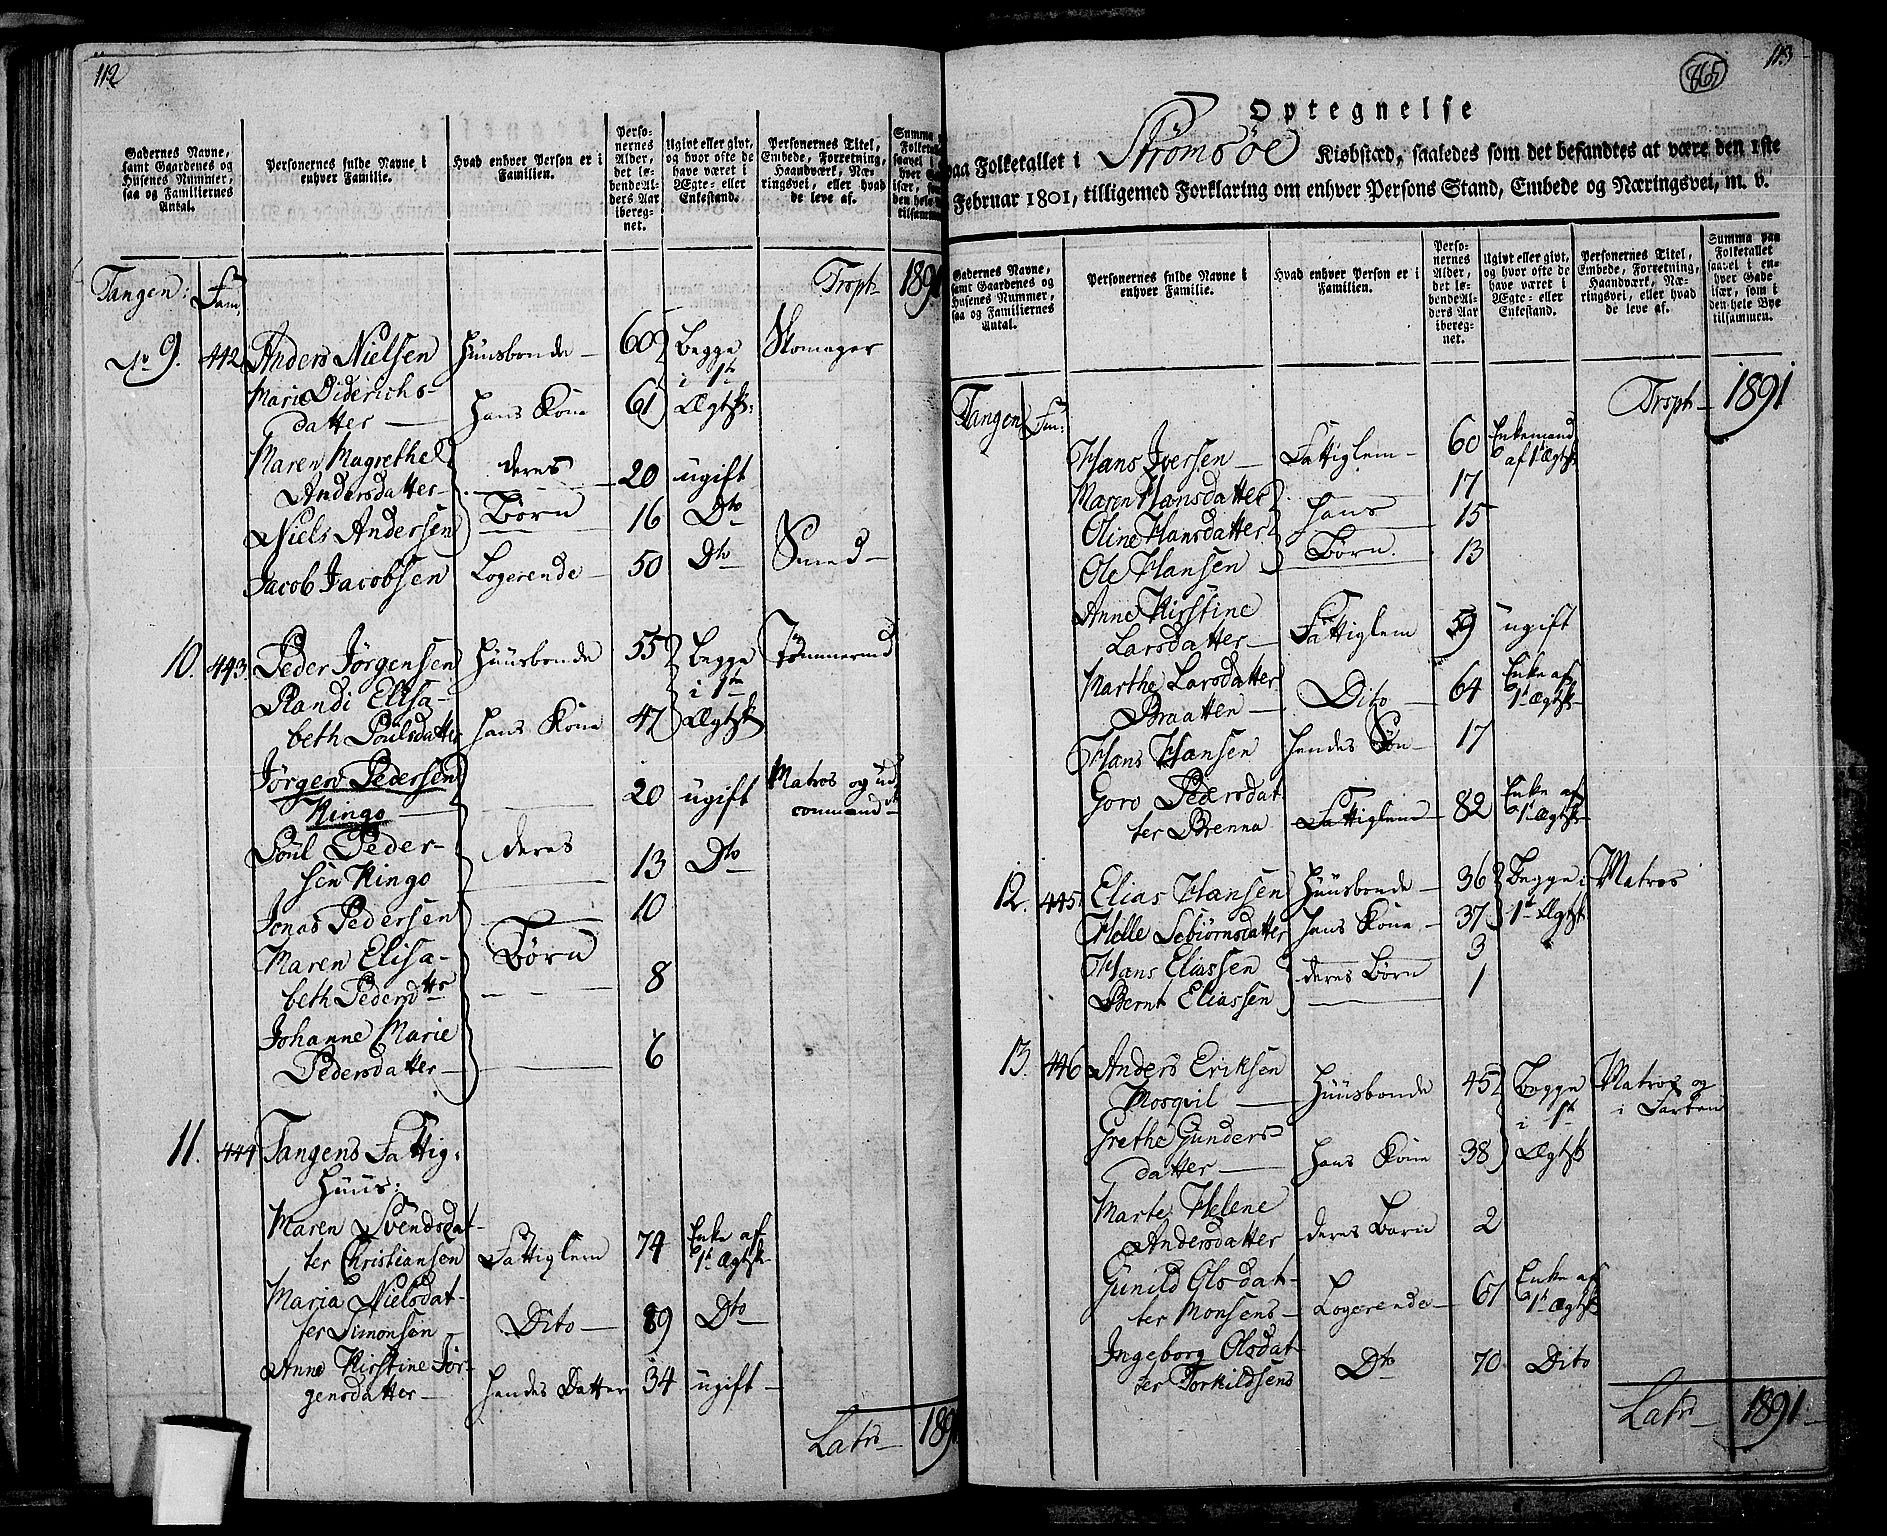 112
Gadernes Navne,
samt Gaardenes og
Husenes Nummer,
saa og Familiernes
Antal.
Personernes fulde Navne i
enhver Familie.
Hvad enhver Person er i
Familien.
Perso-
nernes
Alder,
det le-
bende Al-
ders Aar
ibereg-
net.
Ugivt eller givt,
og hvor ofte de
have været i
Ægte- eller
Enkestand.
Personernes Titel,
Embede, Forretning,
Haandværk, Næ-
ringsvei, eller hvad
de leve af.
Summa
Folketal
saavel i
hver Ga
især, so
den hele
tilsamm
Tangen: Fam. Trspt 1891
No 9. 442 Anders Nielsen Huusbonde 60 Begge Skomager
Marie Diderichs- i 1te
datter hans Kone 61 Ægtsk:
Maren Magrethe deres
Andersdatter 20 ugift
Niels Andersen Børn 16 Dto
Jacob Jacobsen Logerende 50 Dto Smed
10. 443 Peder Jørgensen Huusbonde 55 Begge Tømmermd
Randi Elisa- i 1te
beth Poulsdatter hans Kone 47 Ægtsk
Jørgen Pedersen 20 ugift Matros og ud
Ringo commend
Poul Peder- deres
sen Ringo 13 Dto
Jonas Pedersen 10
Maren Elisa- Børn
beth Pedersdttr 8
Johanne Marie 6
Pedersdatter
11. 444 Tangens Fattig-
Huus:
Maren Svendsdat- Enke af
ter Christiansen Fattiglem 74 1te Ægtsk
Maria Nielsdat-
ter Simonsen Dito 89 Dto
Anne Kirstine Jør-
gensdatter hendes Datter 34 ugift
Latrs 1891
865 113
Optegnelse
paa Folketallet i Strømsøe Kiøbstæd, saaledes som det befandtes at være den 1ste
Februar 1801, tilligemed Forklaring om enhver Persons Stand, Embede og Næringsvei, m. v.
Gadernes Navne,
samt Gaardenes og
Husenes Nummer,
saa og Familiernes
Antal.
Personernes fulde Navne i
enhver Familie.
Hvad enhver Person er i
Familien.
Perso-
nernes
Alder,
det le-
bende Al-
ders Aar
ibereg-
net.
Ugivt eller givt,
og hvor ofte de
have været i
Ægte- eller
Enkestand.
Personernes Titel,
Embede, Forretning,
Haandværk, Næ-
ringsvei, eller hvad
de leve af.
Summa paa
Folketallet
saavel i en-
hver Gade
især, som i
den hele Bye
tilsammen.
Tangen Fm: Trspt 1891
Hans Iversen Fattiglem 60 Enkemand af 1te Ægtsk
Maren Hansdatter 17
Oline Hansdatter hans 15
Ole Hansen Børn. 13
Anne Kirstine
Larsdatter Fattiglem 59 ugift
Marthe Larsdatter Enke af
Braatten Dito 64 1te Ægtsk
Hans Hansen hendes Søn 17
Goro Pedersdat- Enke af
ter Brenna Fattiglem 82 1te Ægtsk
12. 445 Elias Hansen Huusbonde 36 Begge i Matros
Helle Sebiørnsdatter hans Kone 37 1te Ægtsk
Hans Eliassen deres Børn 3
Bernt Eliassen 1
13. 446 Anders Eriksen Huusbonde 45 Begge Matros og
Mosqvil i 1te i Farten
Grethe Gunders-
datter hans Kone 38 Ægtsk
Marte Helene
Andersdatter deres Barn 2
Gunild Olsdat- Enke af
ter Monsens Logerende 67 1te Ægtsk
Ingeborg Olsdat-
ter Torkildsens Dto 70 Dito
Latrs 1891